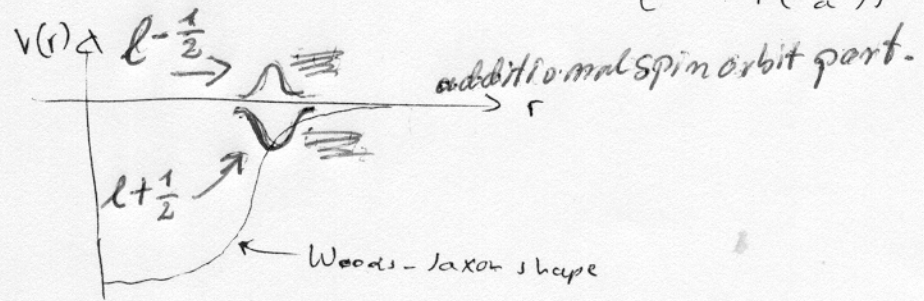 V(r) ℓ-1/2
additional spin orbit part.
r
ℓ+1/2
Woods-Saxon shape